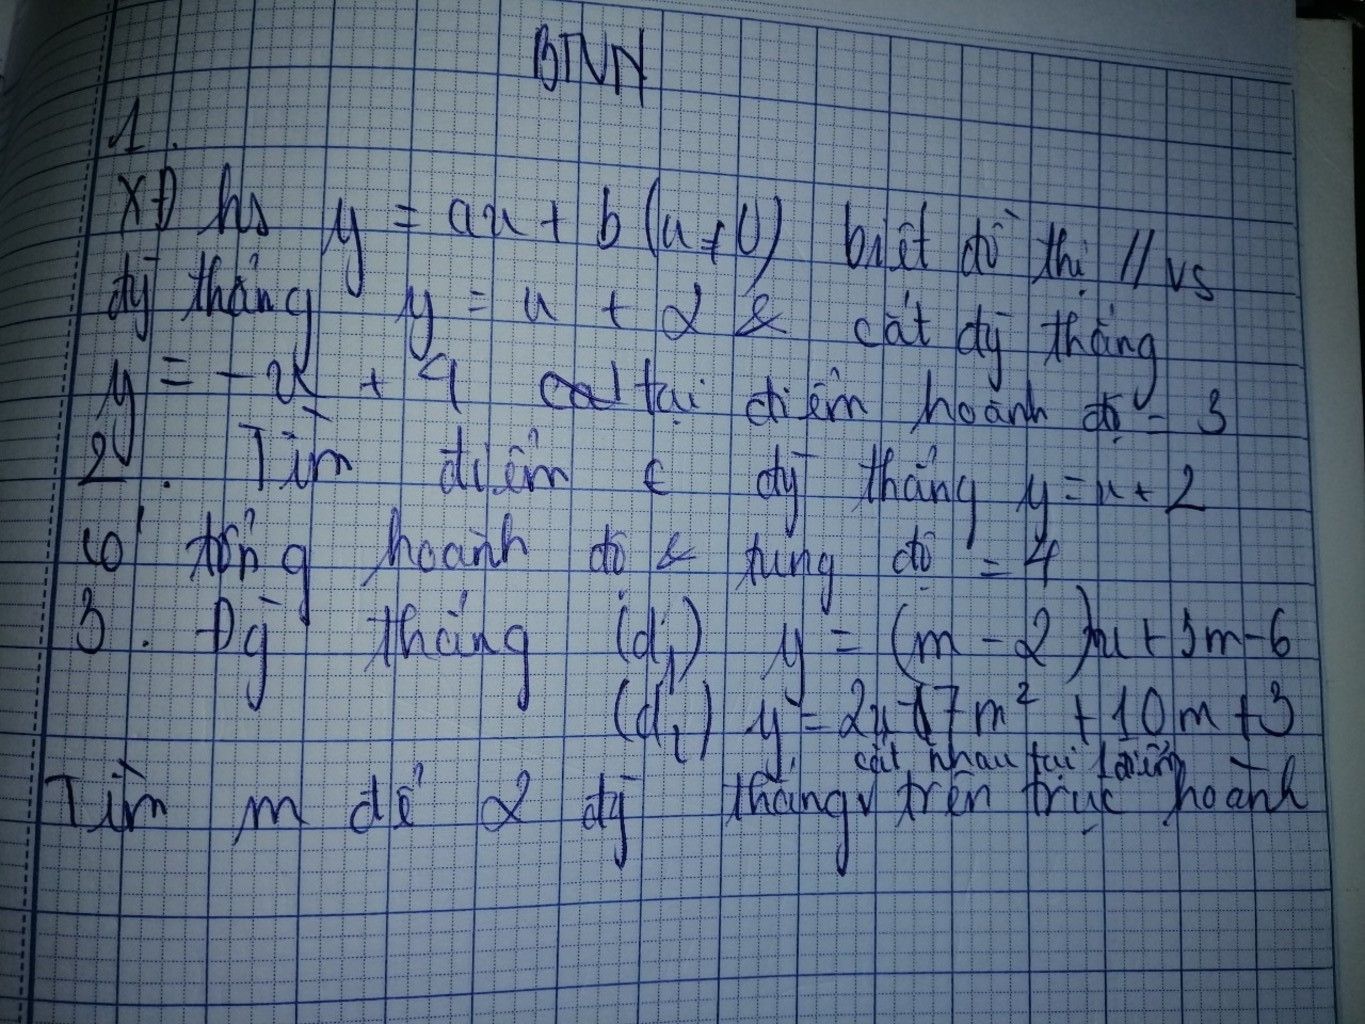 BTVN
1.
XĐ hs y = ax + b (a ≠ 0) biết đồ thị // vs
đg thẳng y = x + 2 & cắt đg thẳng
y = -x + 4 tại điểm hoành độ = 3
2. Tìm điểm ∈ đg thẳng y = x + 2
có tổng hoành độ & tung độ = 4
3. Đg thẳng (d₁) y = (m - 2)x + 3m - 6
(d₂) y = 2x 7m² + 10m + 3
cắt nhau tại 1 điểm
Tìm m để 2 đg thẳng v trên trục hoành